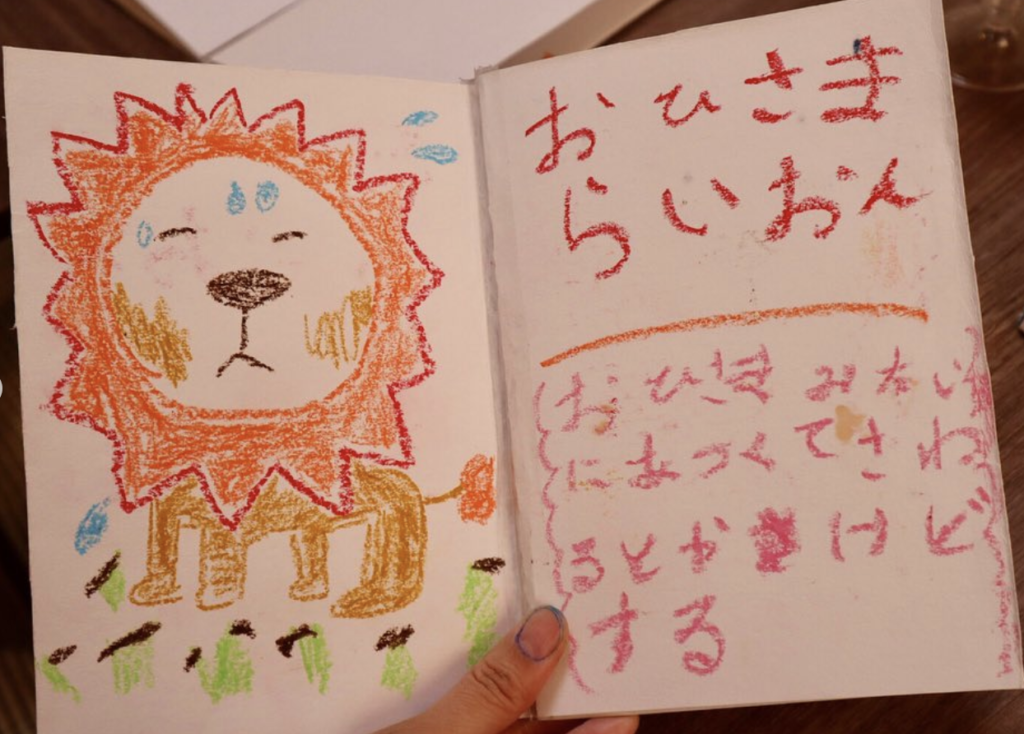 おひさま
らいおん
おひさまみたい
にあつくてさわ
るとやけど
する